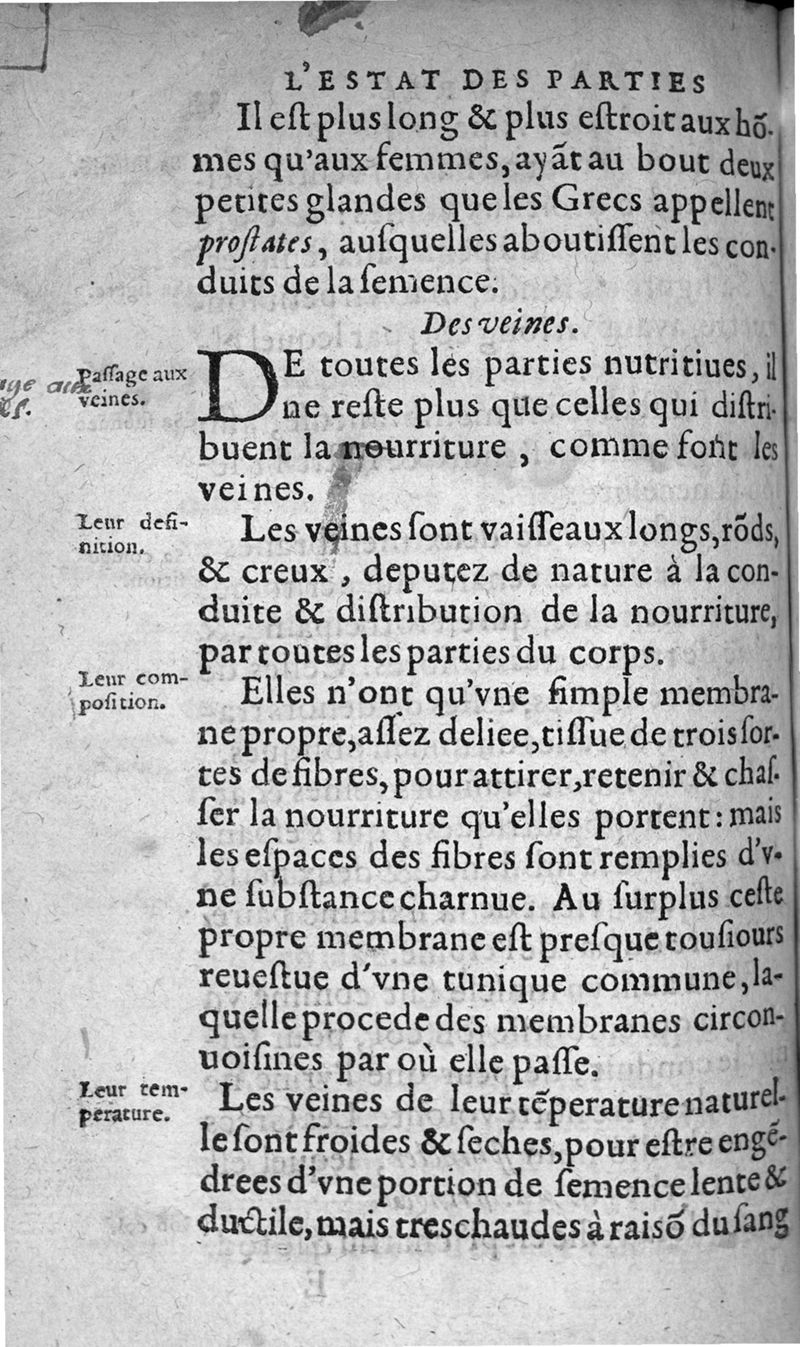 L'ESTAT DES PARTIES
Il eſt plus long & plus eſtroit aux hõ-
mes qu'aux femmes, ayãt au bout deux
petites glandes que les Grecs appellent
proſtates, auſquelles aboutiſſent les con-
duits de la ſemence.
Des veines.
Paſſage aux
veines.
DE toutes les parties nutritiues, il
ne reſte plus que celles qui diſtri-
buent la nourriture, comme font les
veines.
Leur defi-
nition.
Les veines ſont vaiſſeaux longs, rõds,
& creux, deputez de nature à la con-
duite & diſtribution de la nourriture,
par toutes les parties du corps.
Leur com-
poſition.
Elles n'ont qu'vne ſimple membra-
ne propre, aſſez deliee, tiſſue de trois ſor-
tes de fibres, pour attirer, retenir & chaſ-
ſer la nourriture qu'elles portent: mais
les eſpaces des fibres ſont remplies d'v-
ne ſubſtance charnue. Au ſurplus ceſte
propre membrane eſt preſque touſiours
reueſtue d'vne tunique commune, la-
quelle procede des membranes circon-
uoiſines par où elle paſſe.
Leur tem-
perature.
Les veines de leur tẽperature naturel-
le ſont froides & ſeches, pour eſtre engẽ-
drees d'vne portion de ſemence lente &
ductile, mais treschaudes à raisõ du ſang